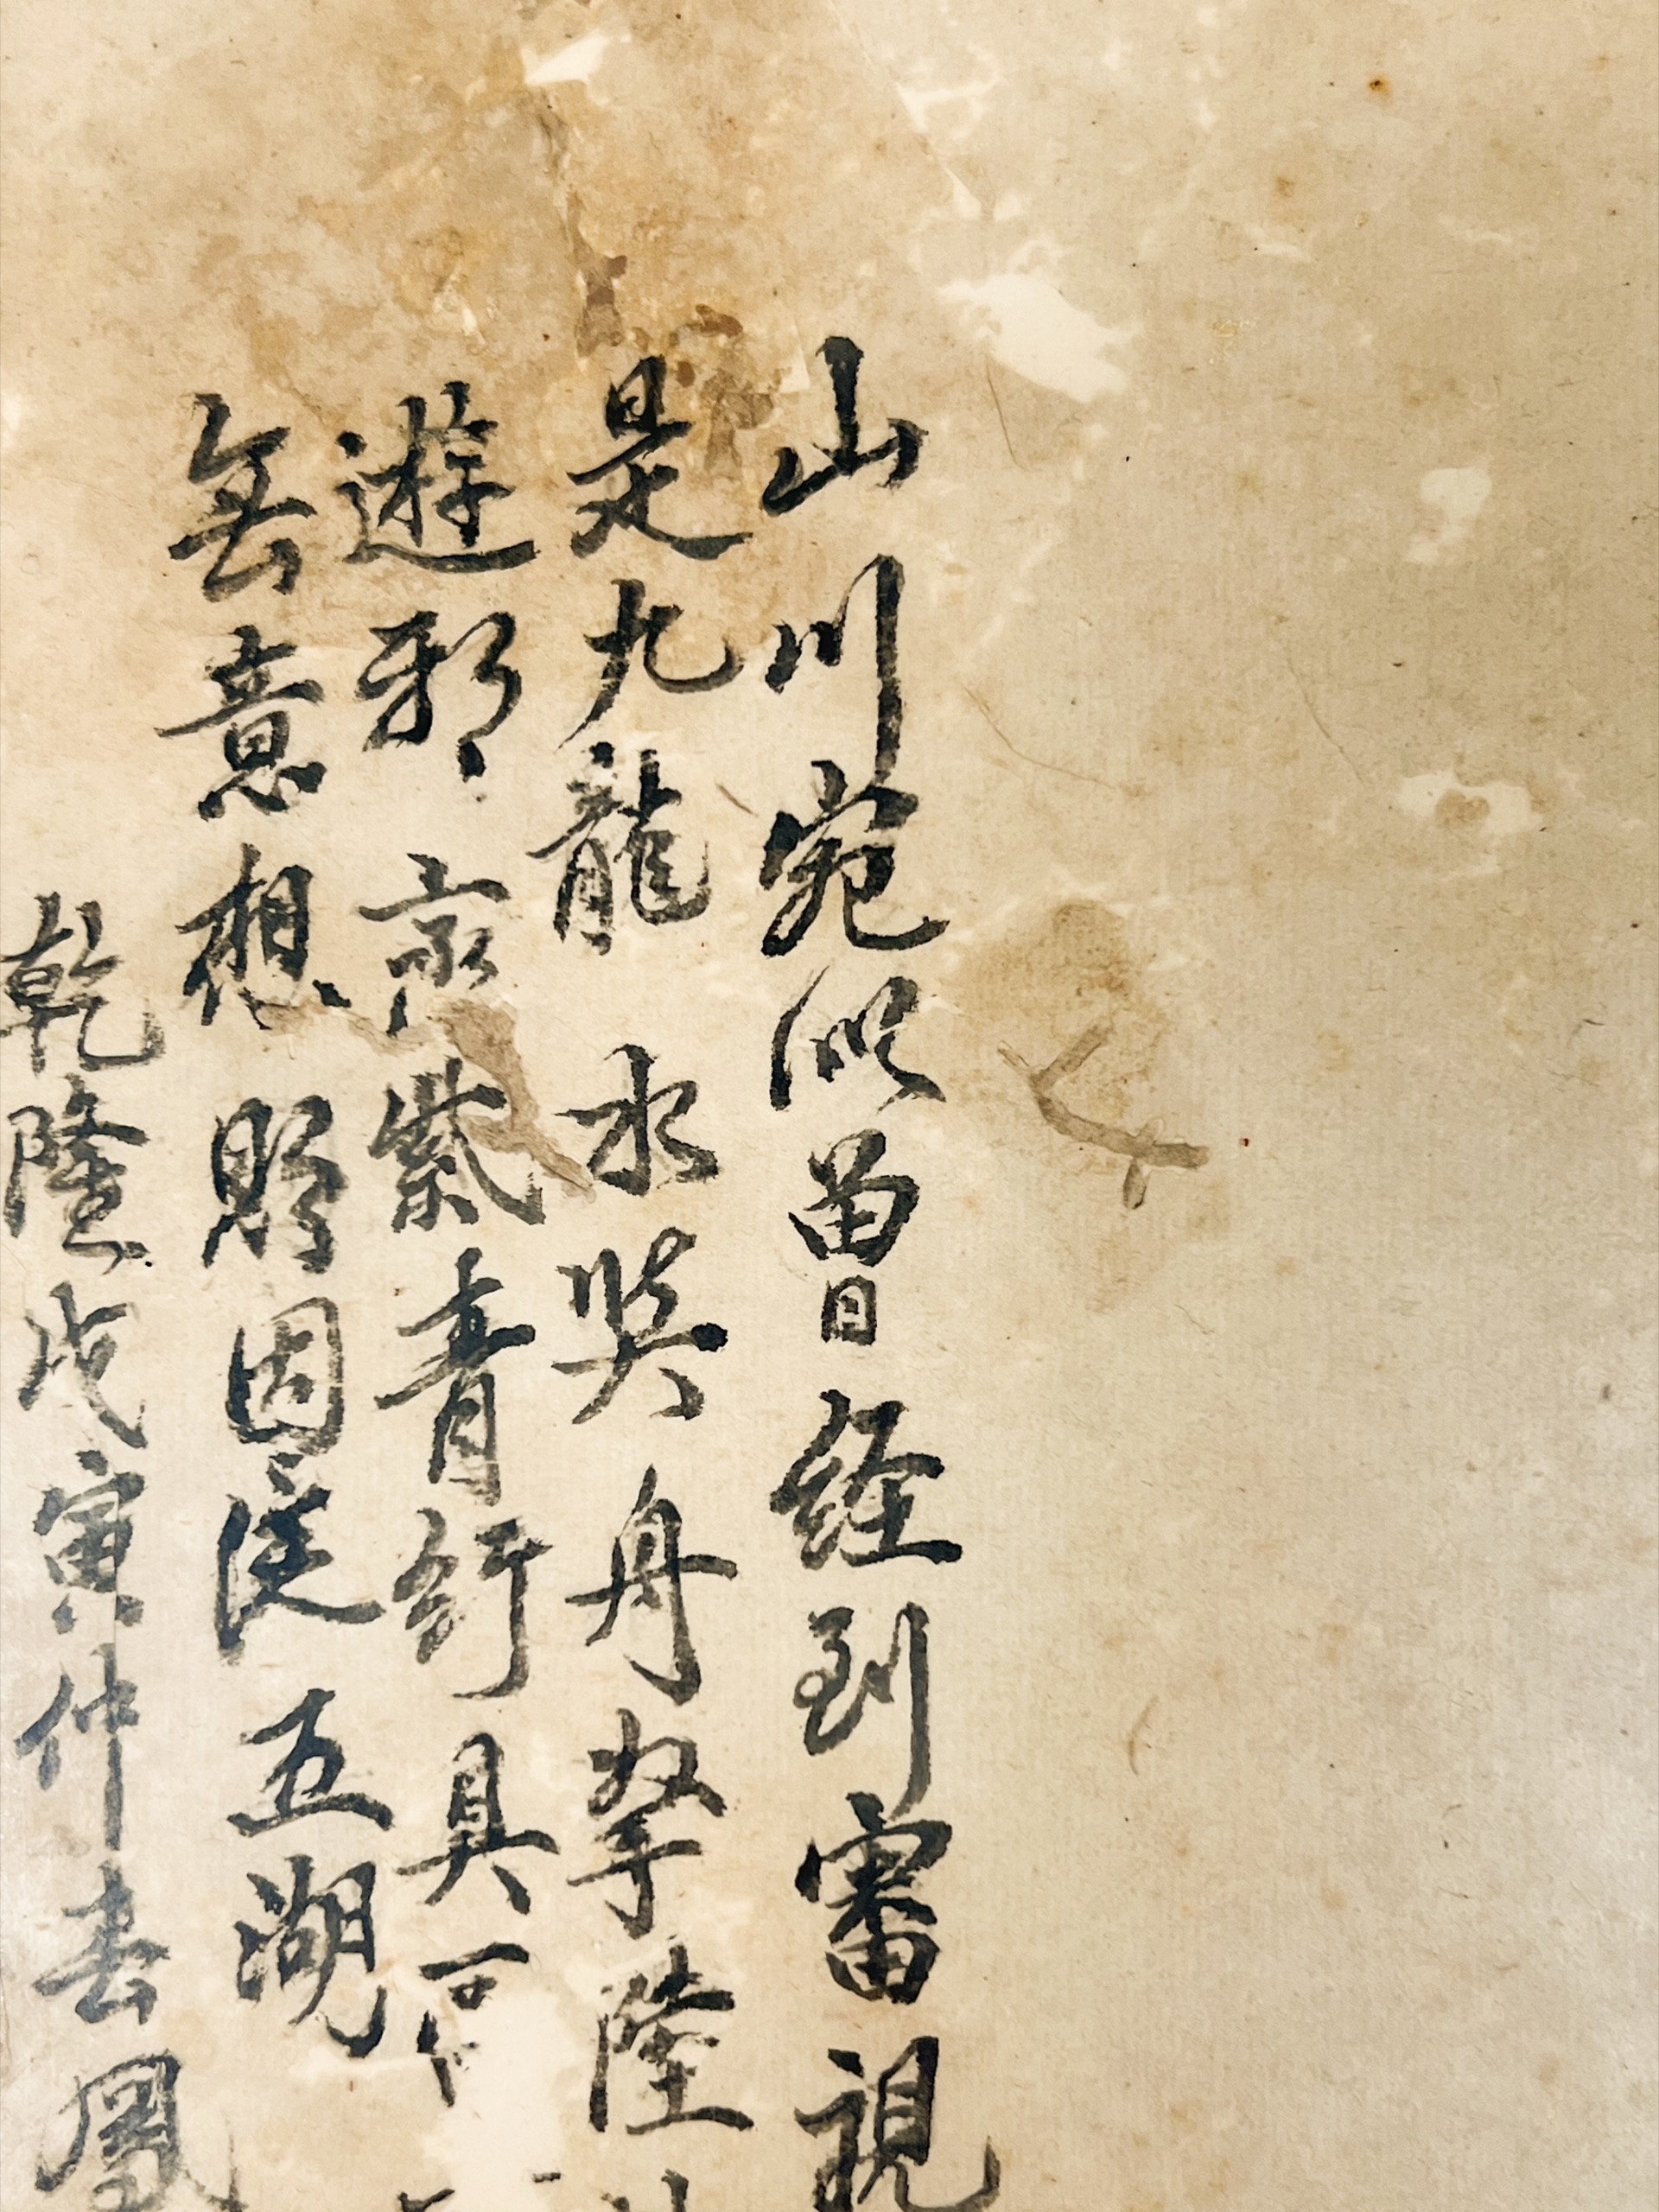 山川宛似曾經到審視
是九龍水與舟拏陸
遊邪 紫青紆具
無意想 因從五湖
乾隆戊寅仲春鳳